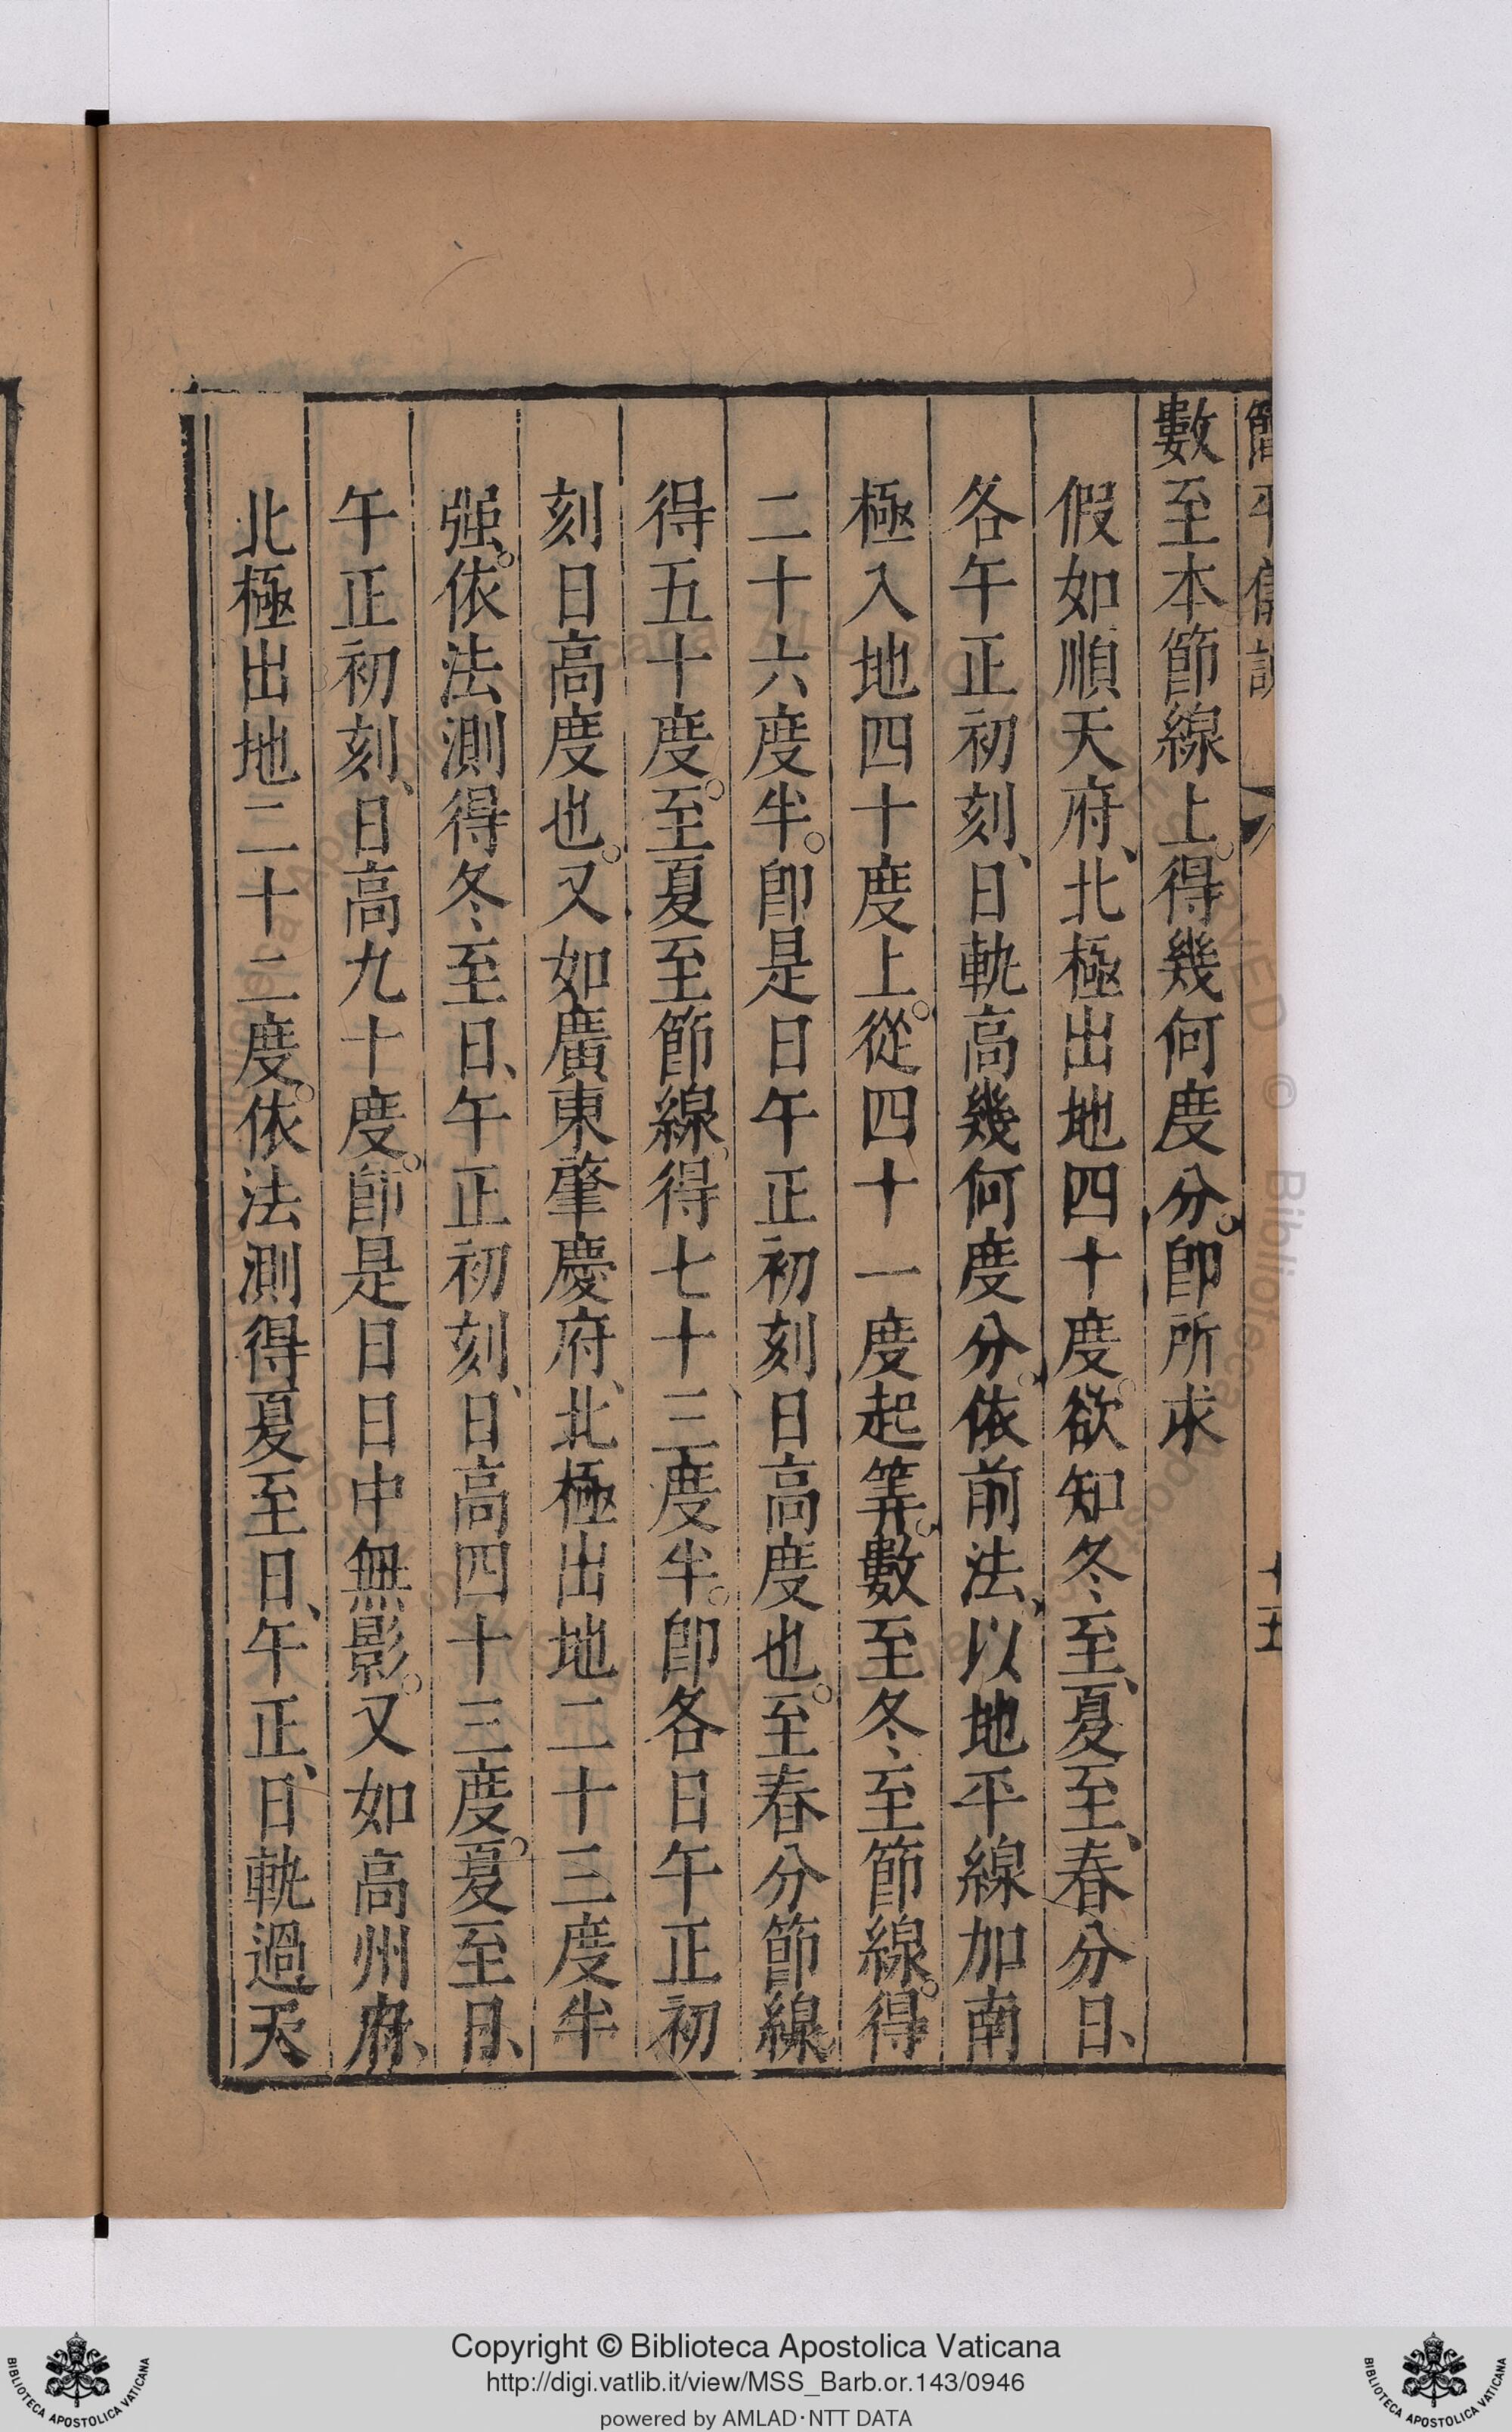 簡平儀說
十五
數至本節線上。得幾何度分。卽所求
假如順天府、北極出地四十度。欲知冬至、夏至、春分日、
各午正初刻、日軌高幾何度分。依前法、以地平線加南
極入地四十度上。從四十一度起筭。數至冬至節線。得
二十六度半。卽是日午正初刻日高度也。至春分節線、
得五十度。至夏至節線。得七十三度半。卽各日午正初
刻日高度也。又如廣東肇慶府、北極出地二十三度半
强。依法測得冬至日、午正初刻、日高四十三度。夏至日、
午正初刻、日高九十度。卽是日日中無影。又如高州府、
北極出地二十二度。依法測得夏至日、午正、日軌過天
Copyright © Biblioteca Apostolica Vaticana
http://digi.vatlib.it/view/MSS_Barb.or.143/0946
powered by AMLAD·NTT DATA
BIBLIOTECA APOSTOLICA VATICANA
BIBLIOTECA APOSTOLICA VATICANA